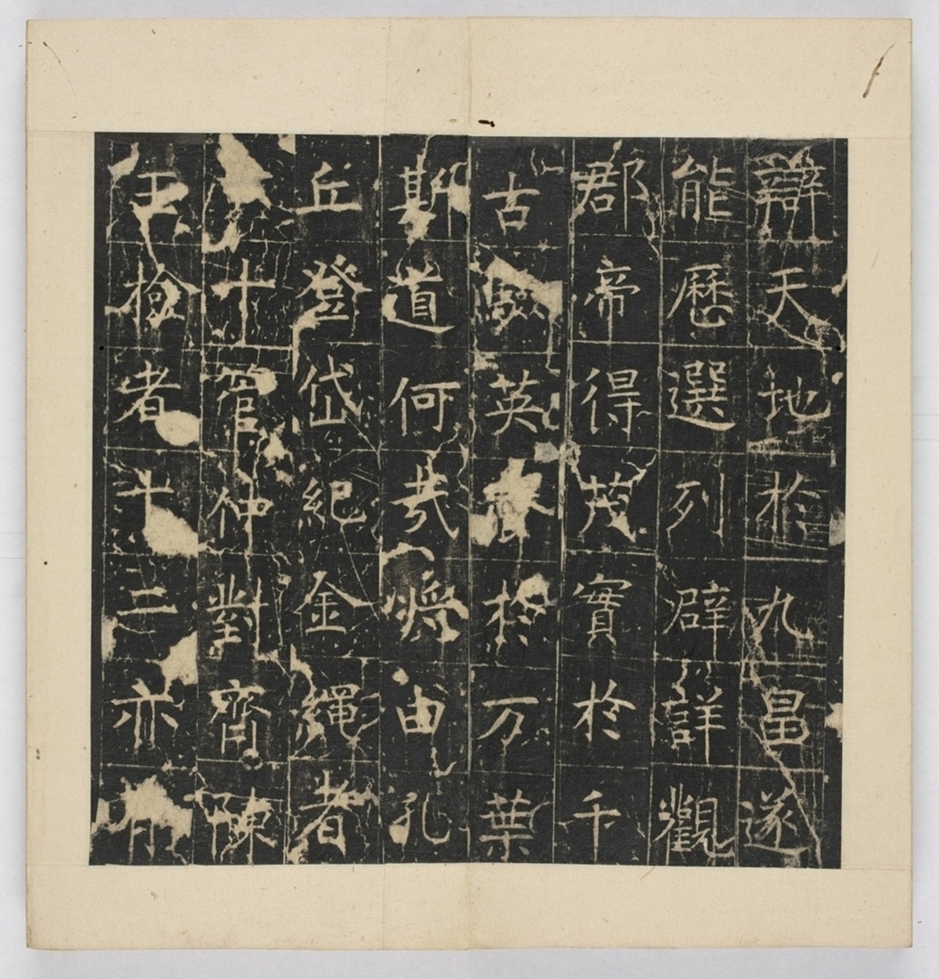 辯天地於丸昌遂
能歷選列辟詳觀
郡帝得茂實於千
古英聲於万葉
斯道何哉由孔
丘登岱紀金繩者
十管仲對齊陳
玉檢者十二亦有